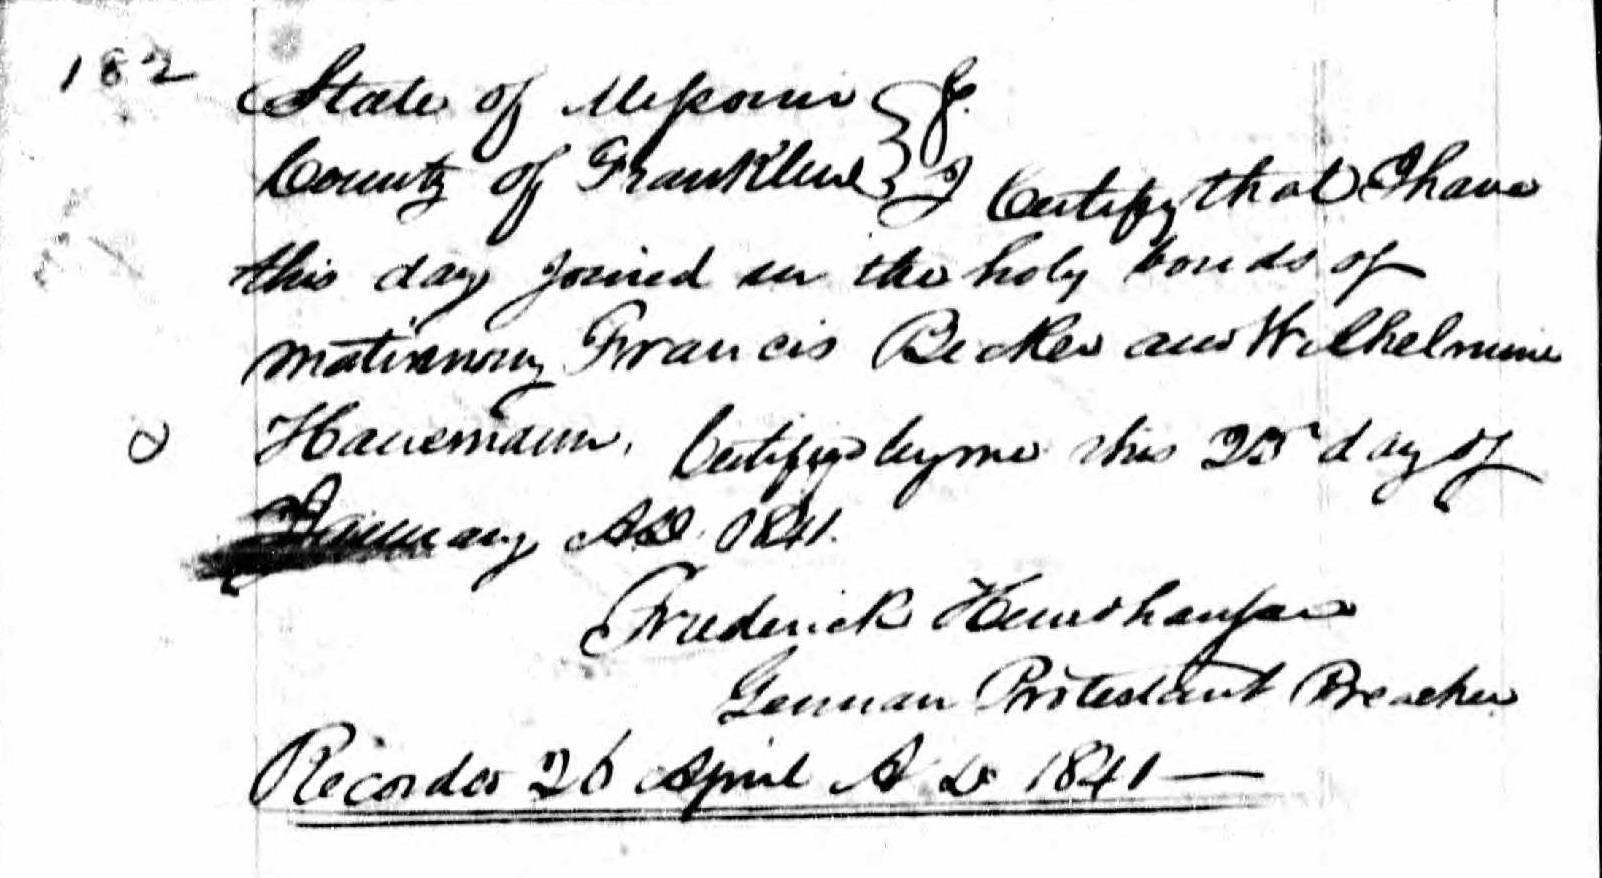 182
State of Missouri
County of Franklin } I Certify that I have
this day joined in the holy bonds of
matrimony Francis Becker and Wilhelmine
Hausmann. Certifyed by me this 25 day of
January AD. 1841.
Frederick
German Protestant Preacher
Recorded 26 April A D 1841 —